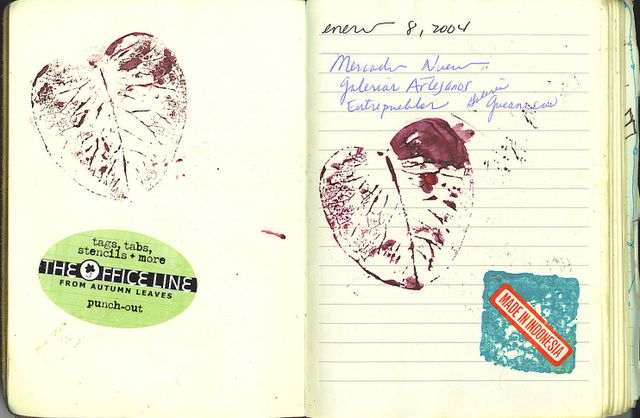 tags, tabs,
stencils + more
THE OFFICE LINE
FROM AUTUMN LEAVES
punch-out
enero 8, 2004
Mercado Nuevo
Galerias Artesanos
Entrepueblos Galeria
MADE IN INDONESIA